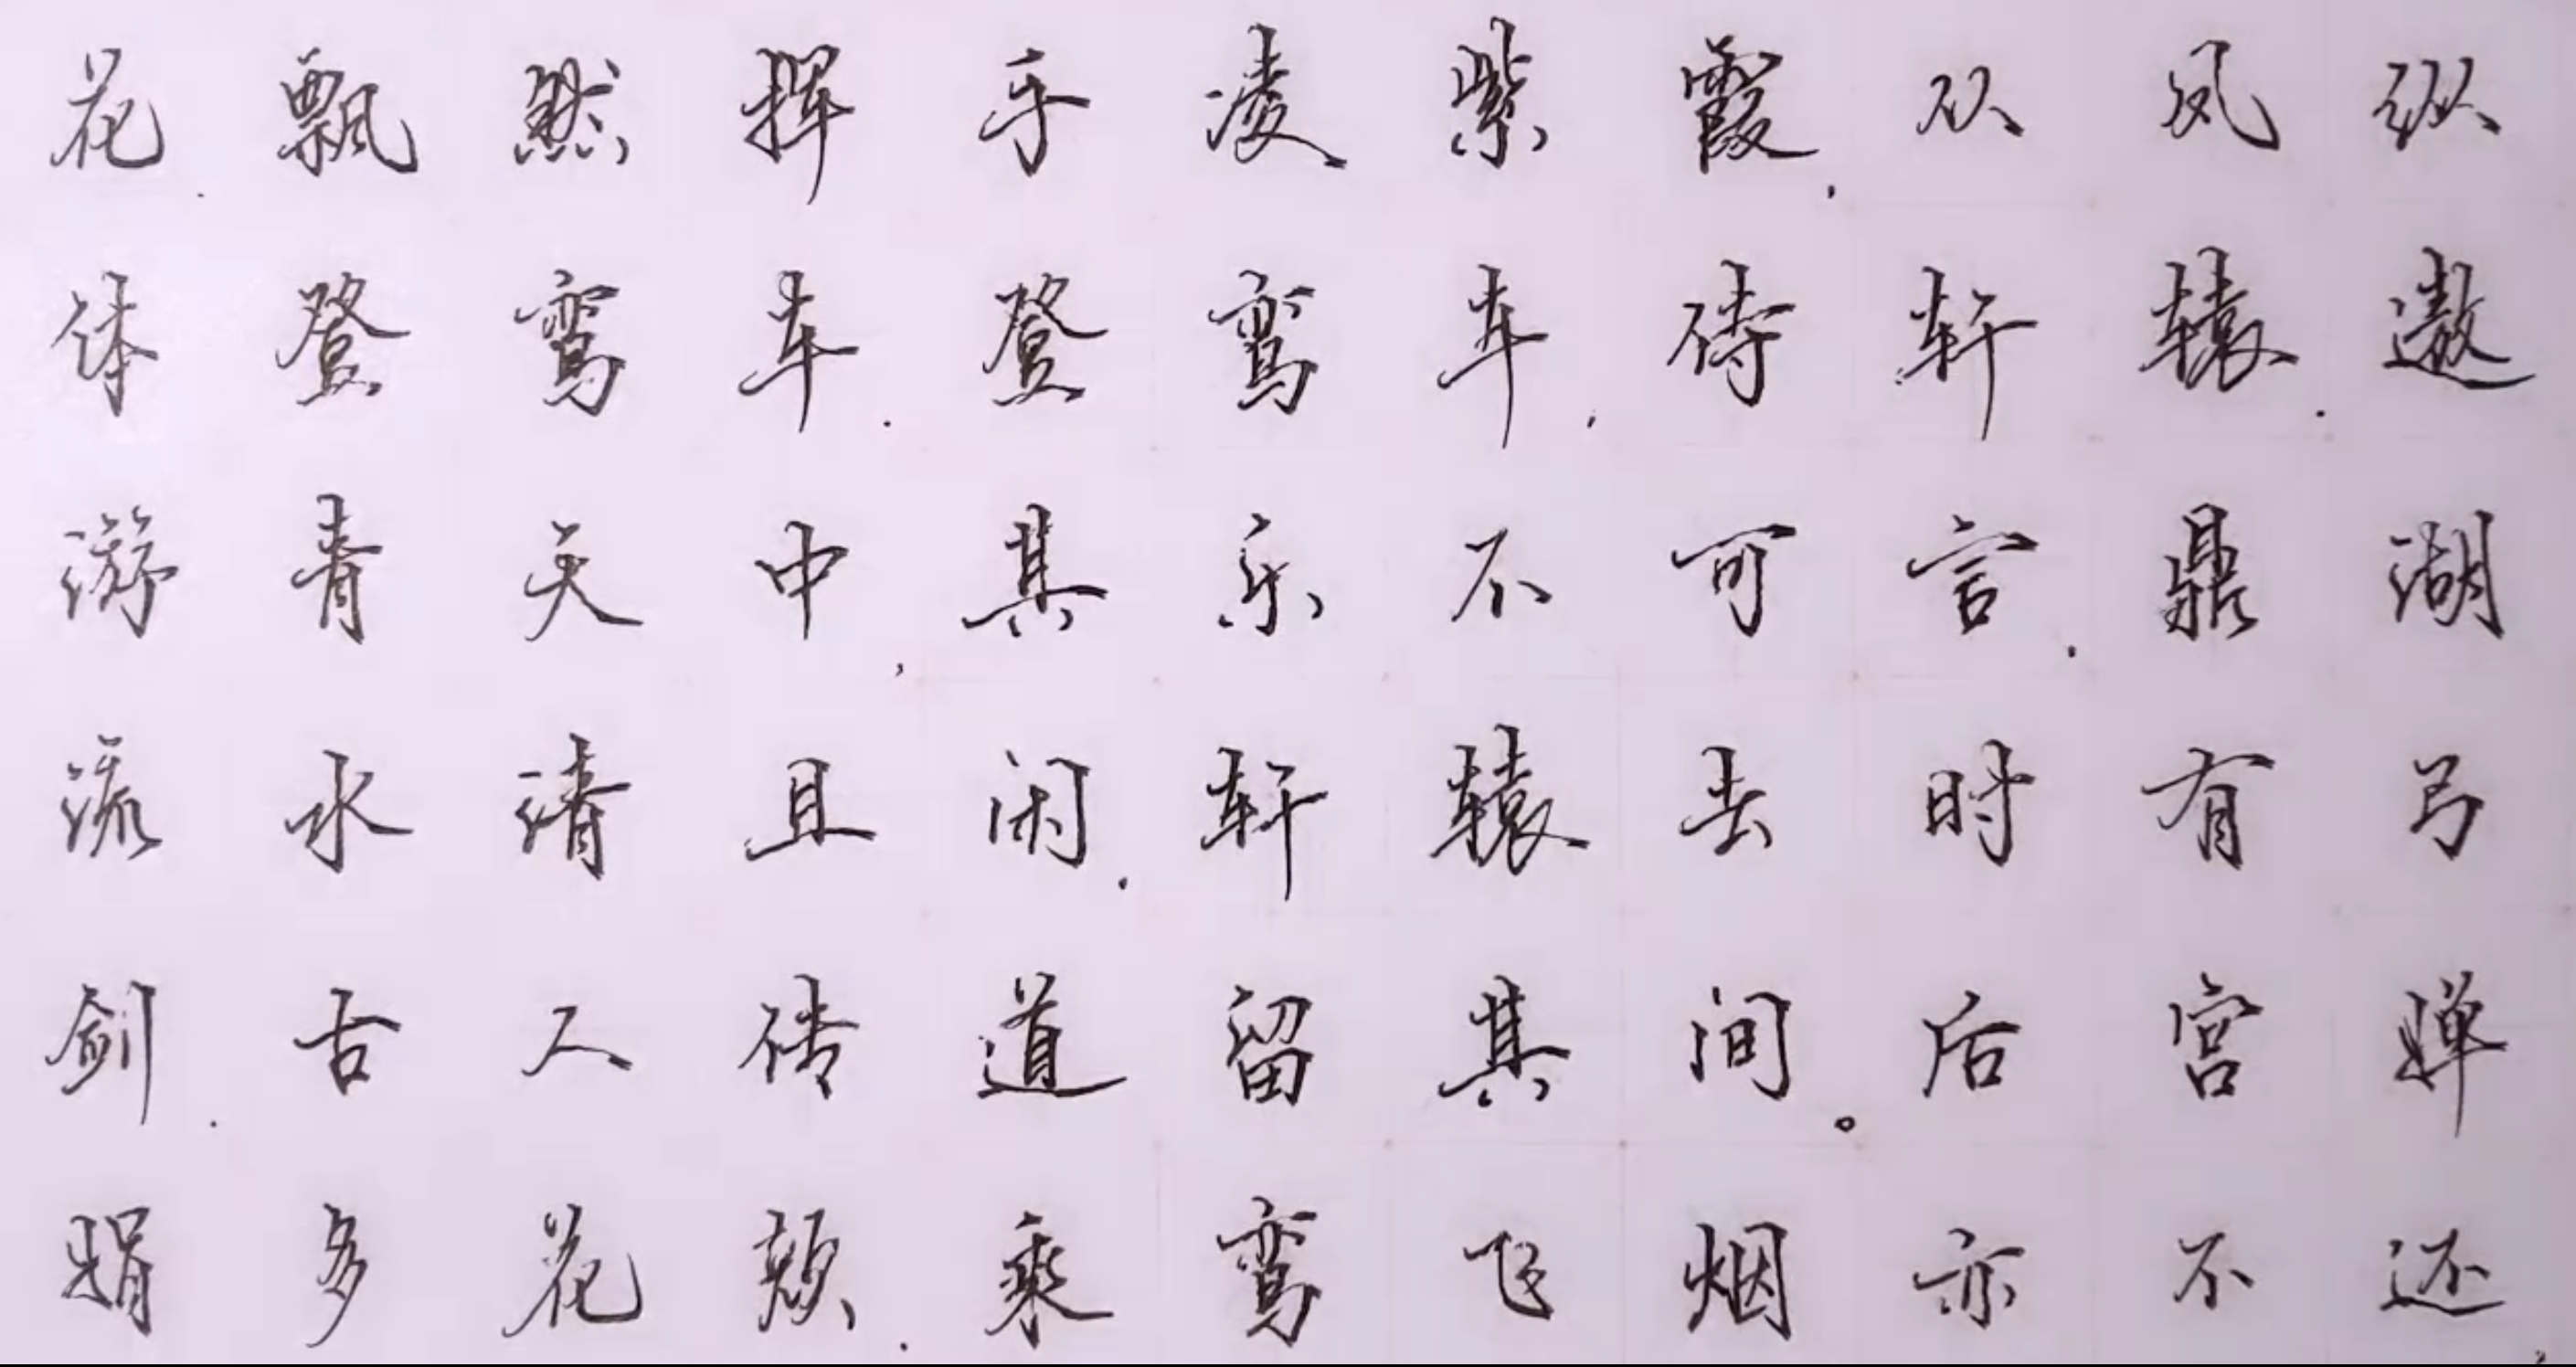 花.飘然挥手凌紫霞,从风纵
体登鸾车.登鸾车,侍轩辕.遨
游青天中,其乐不可言.鼎湖
流水清且闲.轩辕去时有弓
剑.古人传道留其间。后宫婵
娟多花颜.乘鸾飞烟亦不还,